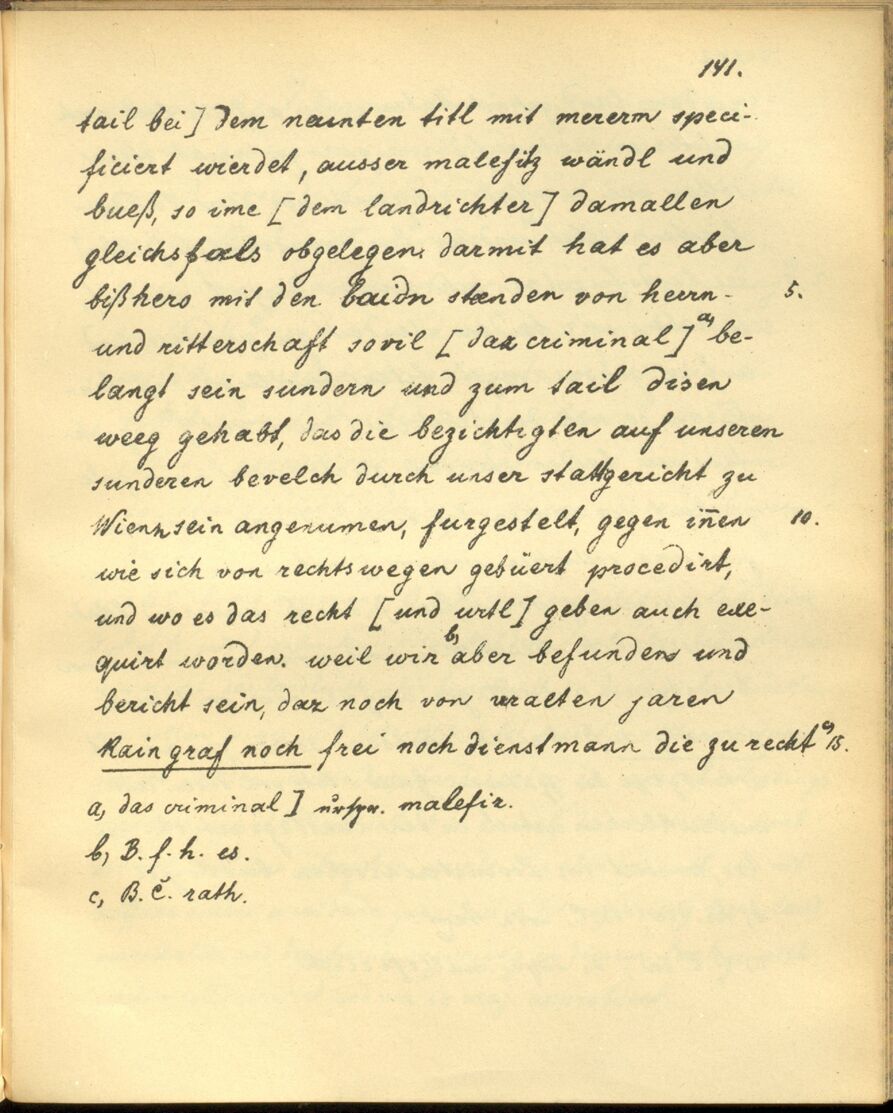 141.
tail bei] dem neunten titl mit mererm speci-
ficiert wierdet, ausser malefitz wändl und
bueß, so ime [dem landrichter] damallen
gleichsfals obgelegen. darmit hat es aber
bißhero mit den baidn stenden von herrn- 5.
und ritterschaft sovil [daz criminal] a) be-
langt sein sundern und zum tail disen
weeg gehabt, das die bezichtigten auf unseren
sunderen bevelch durch unser stattgericht zu
Wienn sein angenumen, furgestelt, gegen iñen 10.
wie sich von rechtswegen gebüert procedirt,
und wo es das recht [und urtl] geben auch exe-
quirt worden. weil wir b) aber befunden und
bericht sein, daz noch von uralten jaren
kain graf noch frei noch dienstmann die zu recht c) 15.
a, das criminal] urspr. malefiz.
b, B. f. h. es.
c, B. Č. rath.